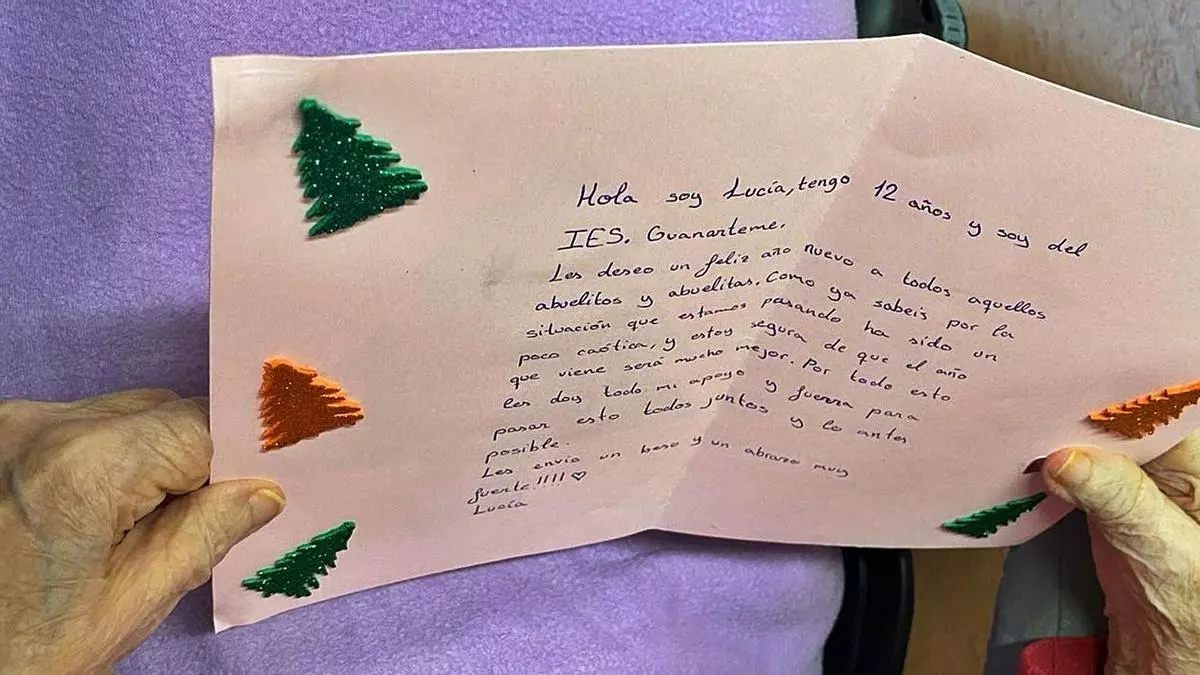 Hola soy Lucía, tengo 12 años y soy del
IES. Guanarteme.
Les deseo un feliz año nuevo a todos aquellos
abuelitos y abuelitas. Como ya sabeis por la
situación que estamos pasando ha sido un
poco caótica, y estoy segura de que el año
que viene será mucho mejor. Por todo esto
les doy todo mi apoyo y fuerza para
pasar esto todos juntos y lo antes
posible.
Les envío un beso y un abrazo muy
fuerte!!!! ♡
Lucía